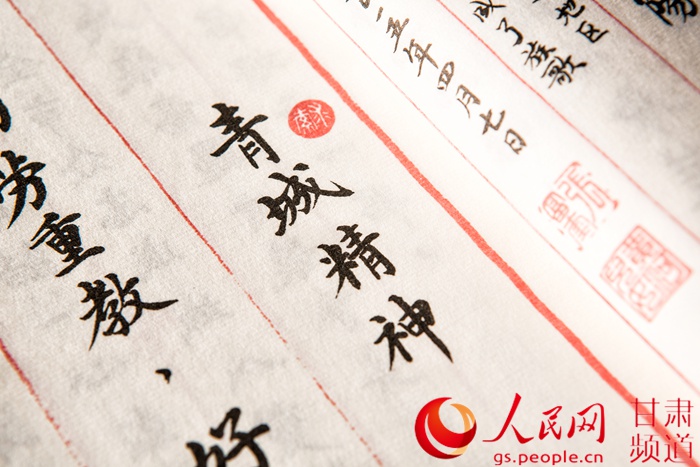 地区
成了族歌
五年四月七日
青城精神
劳重教、好
人民网
gs.people.cn
甘肃
频道